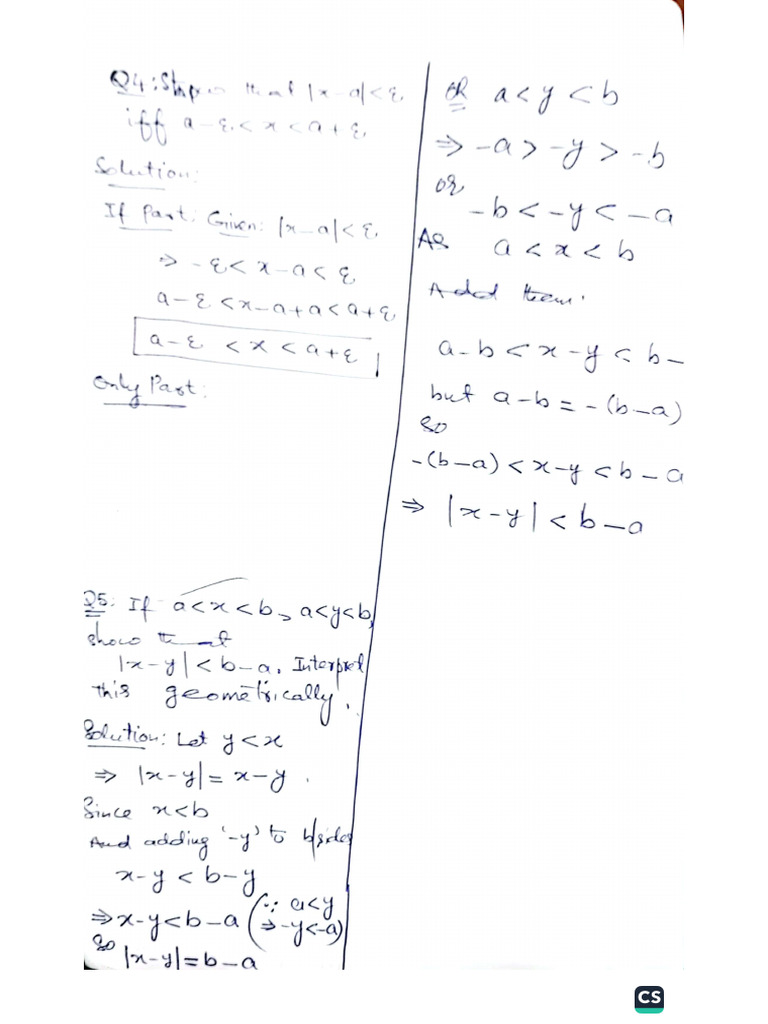 Q4: Show that |x-a|<ε
iff a-ε<x<a+ε
Solution:
If Part: Given: |x-a|<ε
⇒ -ε<x-a<ε
a-ε<x-a+a<a+ε
a-ε<x<a+ε
Only Part:
Q5: If a<x<b, a<y<b,
show that
|x-y|<b-a. Interpret
this geometrically.
Solution: Let y<x
⇒ |x-y|=x-y.
Since x<b
And adding '-y' to b/sides
x-y<b-y
⇒x-y<b-a (∵ a<y
⇒-y<-a)
So |x-y|=b-a
OR a<y<b
⇒ -a>-y>-b
or
-b<-y<-a
As a<x<b
Added them:
a-b<x-y<b-
but a-b=-(b-a)
So
-(b-a)<x-y<b-a
⇒ |x-y|<b-a
CS